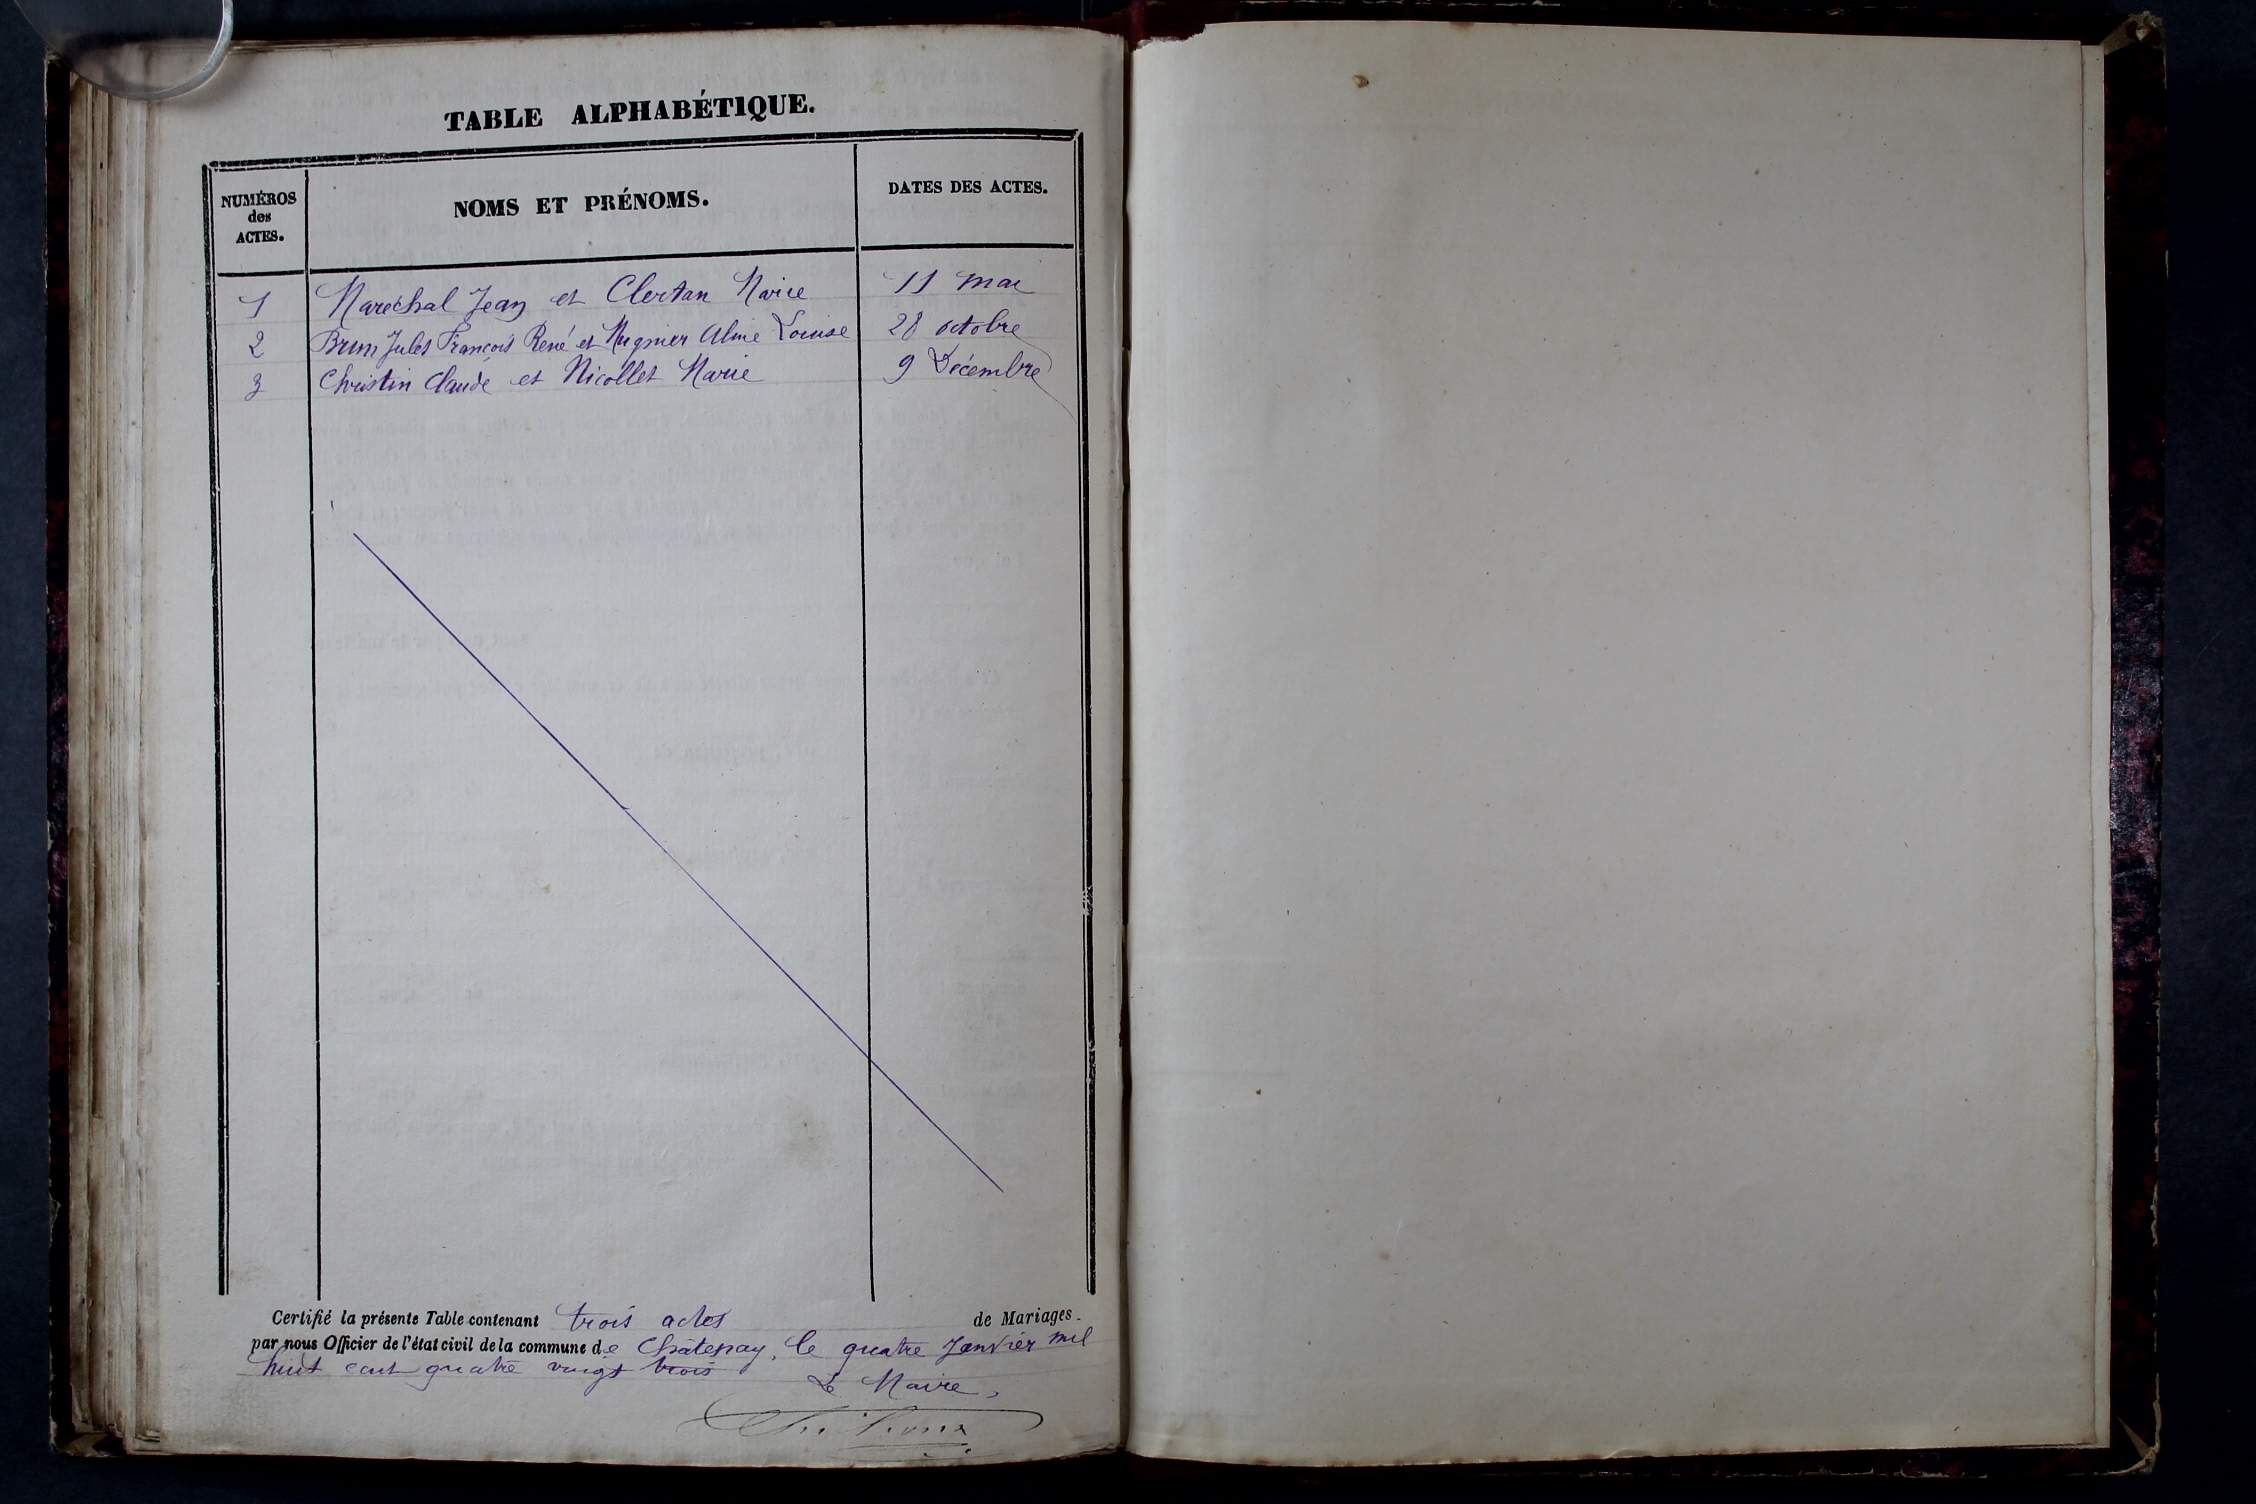 TABLE ALPHABÉTIQUE.
NUMÉROS des ACTES.
NOMS ET PRÉNOMS.
DATES DES ACTES.
1 Maréchal Jean et Clertan Marie 11 mai
2 Brun Jules François René et Mugnier Aline Louise 28 octobre
3 Christin Claude et Nicollet Marie 9 Décembre
Certifié la présente Table contenant trois actes de Mariages.
par nous Officier de l'état civil de la commune de Châtenay, le quatre Janvier mil
huit cent quatre vingt trois
Le Maire,